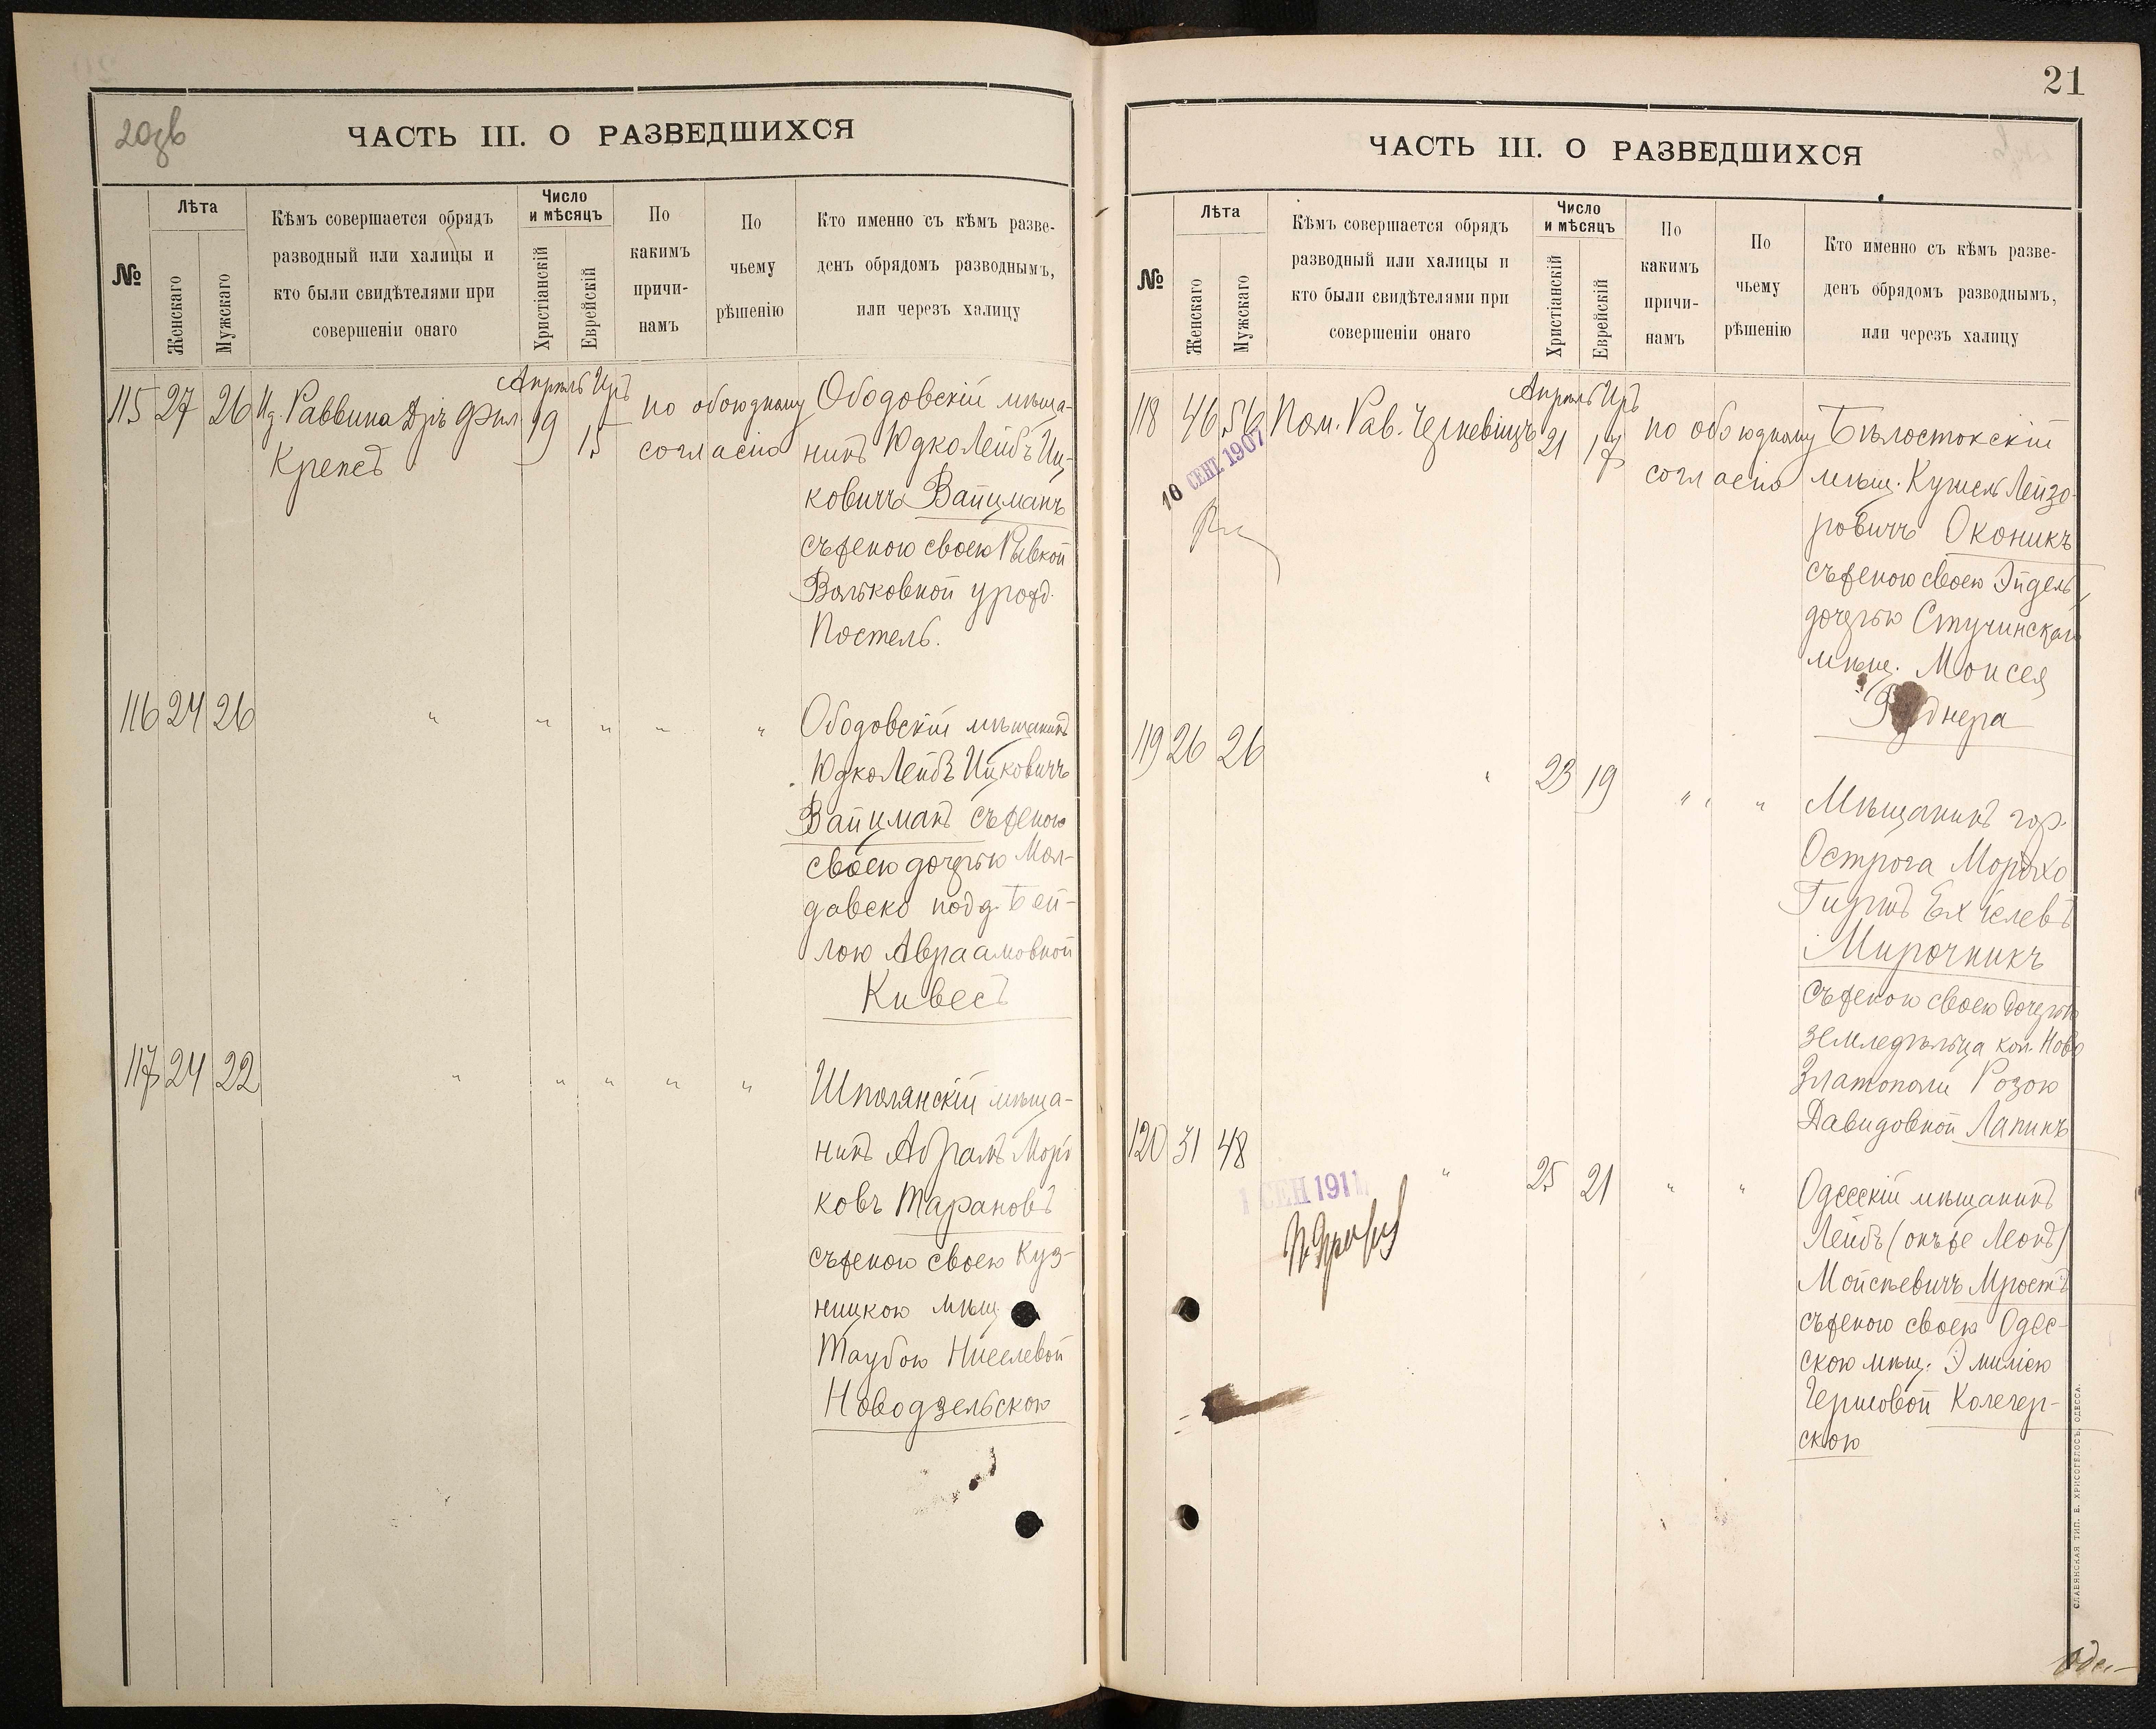 20об
ЧАСТЬ III. О РАЗВЕДШИХСЯ
№
Лѣта
Женскаго
Мужскаго
Кѣмъ совершается обрядъ
разводный или халицы и
кто были свидѣтелями при
совершеніи онаго
Число
и мѣсяцъ
Христіанскій
Еврейскій
По
какимъ
причи-
намъ
По
чьему
рѣшенію
Кто именно съ кѣмъ разве-
денъ обрядомъ разводнымъ,
или черезъ халицу
Апрѣль Иръ
115 27 26 Раввина Дръ Фил. 19 15 по обоюдному Ободовскій мѣща-
Крепсъ согласію нинъ Юдко Лейбъ Иц-
ковичъ Вайцманъ
съ женою своею Рывкой
Вольковной урожд.
Постель.
116 24 26 " " " " " Ободовскій мѣщанинъ
Юдко Лейбъ Ицковичъ
Вайцманъ съ женою
своею дочерью Мол-
давско подд. Бей-
лою Авраамовной
Кивесъ
117 24 22 " " " " " Шполянскій мѣща-
нинъ Абрамъ Морд
ковъ Тарановъ
съ женою своею Куз-
ницкою мѣщ.
Таубою Ниселевой
Новодзельскою
21
ЧАСТЬ III. О РАЗВЕДШИХСЯ
№
Лѣта
Женскаго
Мужскаго
Кѣмъ совершается обрядъ
разводный или халицы и
кто были свидѣтелями при
совершеніи онаго
Число
и мѣсяцъ
Христіанскій
Еврейскій
По
какимъ
причи-
намъ
По
чьему
рѣшенію
Кто именно съ кѣмъ разве-
денъ обрядомъ разводнымъ,
или черезъ халицу
Апрѣль Иръ
118 46 56 Пом. Рав. Черкевицъ 21 17 по обоюдному Бѣлостокскій
10 СЕНТ 1907
согласію мѣщ. Кушель Лейзо-
ровичъ Оконикъ
съ женою своею Эйдель
дочерью Стучинскаго
мѣщ. Моисея
119 26 26 " 23 19 " " Мѣщанинъ гор.
Острога Мордхо
Гиршъ Ехіелевъ
Мирочникъ
съ женою своею дочерью
земледѣльца кол. Ново
Златополи Розою
Давидовной Лапинъ
120 31 48 " 25 21 " " Одесскій мѣщанинъ
1 СЕН 1911
Лейбъ (онъ же Леонъ)
Мойсѣевичъ Мростъ
съ женою своею Одес-
скою мѣщ. Эмиліею
Гершовой Колегер-
скою
СЛАВЯНСКАЯ ТИП. Е. ХРИСОГЕЛОСЪ, ОДЕССА.